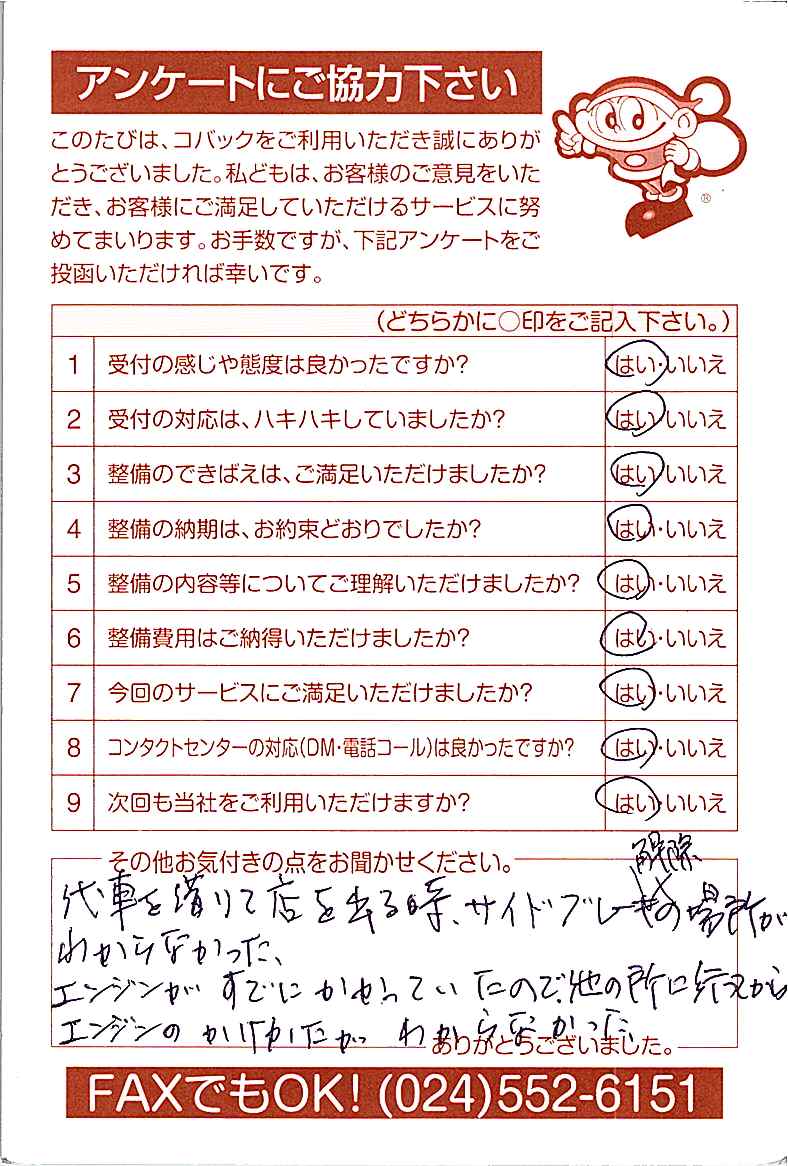 アンケートにご協力下さい
このたびは、コバックをご利用いただき誠にありが
とうございました。私どもは、お客様のご意見をいた
だき、お客様にご満足していただけるサービスに努
めてまいります。お手数ですが、下記アンケートをご
投函いただければ幸いです。
®
(どちらかに○印をご記入下さい。)
1 受付の感じや態度は良かったですか? はい・いいえ
2 受付の対応は、ハキハキしていましたか? はい・いいえ
3 整備のできばえは、ご満足いただけましたか? はい・いいえ
4 整備の納期は、お約束どおりでしたか? はい・いいえ
5 整備の内容等についてご理解いただけましたか? はい・いいえ
6 整備費用はご納得いただけましたか? はい・いいえ
7 今回のサービスにご満足いただけましたか? はい・いいえ
8 コンタクトセンターの対応(DM・電話コール)は良かったですか? はい・いいえ
9 次回も当社をご利用いただけますか? はい・いいえ
その他お気付きの点をお聞かせください。
解除
代車を借りて店を出る時、サイドブレーキの場所が
わからなかった、
エンジンがすでにかかっていたので、他の所に行ってから
エンジンのかけかたがわからなかった、
ありがとうございました。
FAXでもOK! (024)552-6151